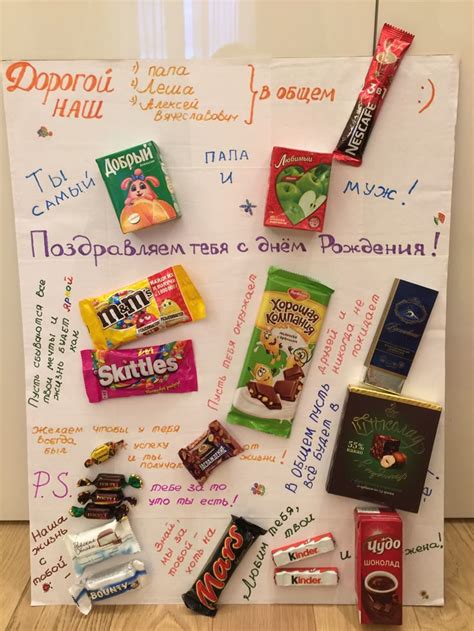 Дорогой
наш
1) папа
2) Лёша
3) Алексей
Вячеславович
В общем
:)
NESCAFÉ
3в1
Ты
самый
Добрый
папа
и
Любимый
муж!
Поздравляем тебя с днём Рождения!
Пусть сбываются все
твои мечты и
жизнь будет яркой
как
m&m's
Skittles
Пусть тебя окружает
Хорошая
компания
друзей и
никогда не
покидает
Вдохновение
Желаем чтобы у тебя
всегда
был
успеху
и ты
получал
от
жизни!
В общем пусть
всё будет в
Шоколаде
55%
какао
P.S.
тебе за то
что ты есть!
Наша
жизнь
с
тобой -
BOUNTY
Знай
мы за
тобой -
хоть на
Mars
Любим тебя,
твои
Kinder
Kinder
и
Чудо
ШОКОЛАД
жена!